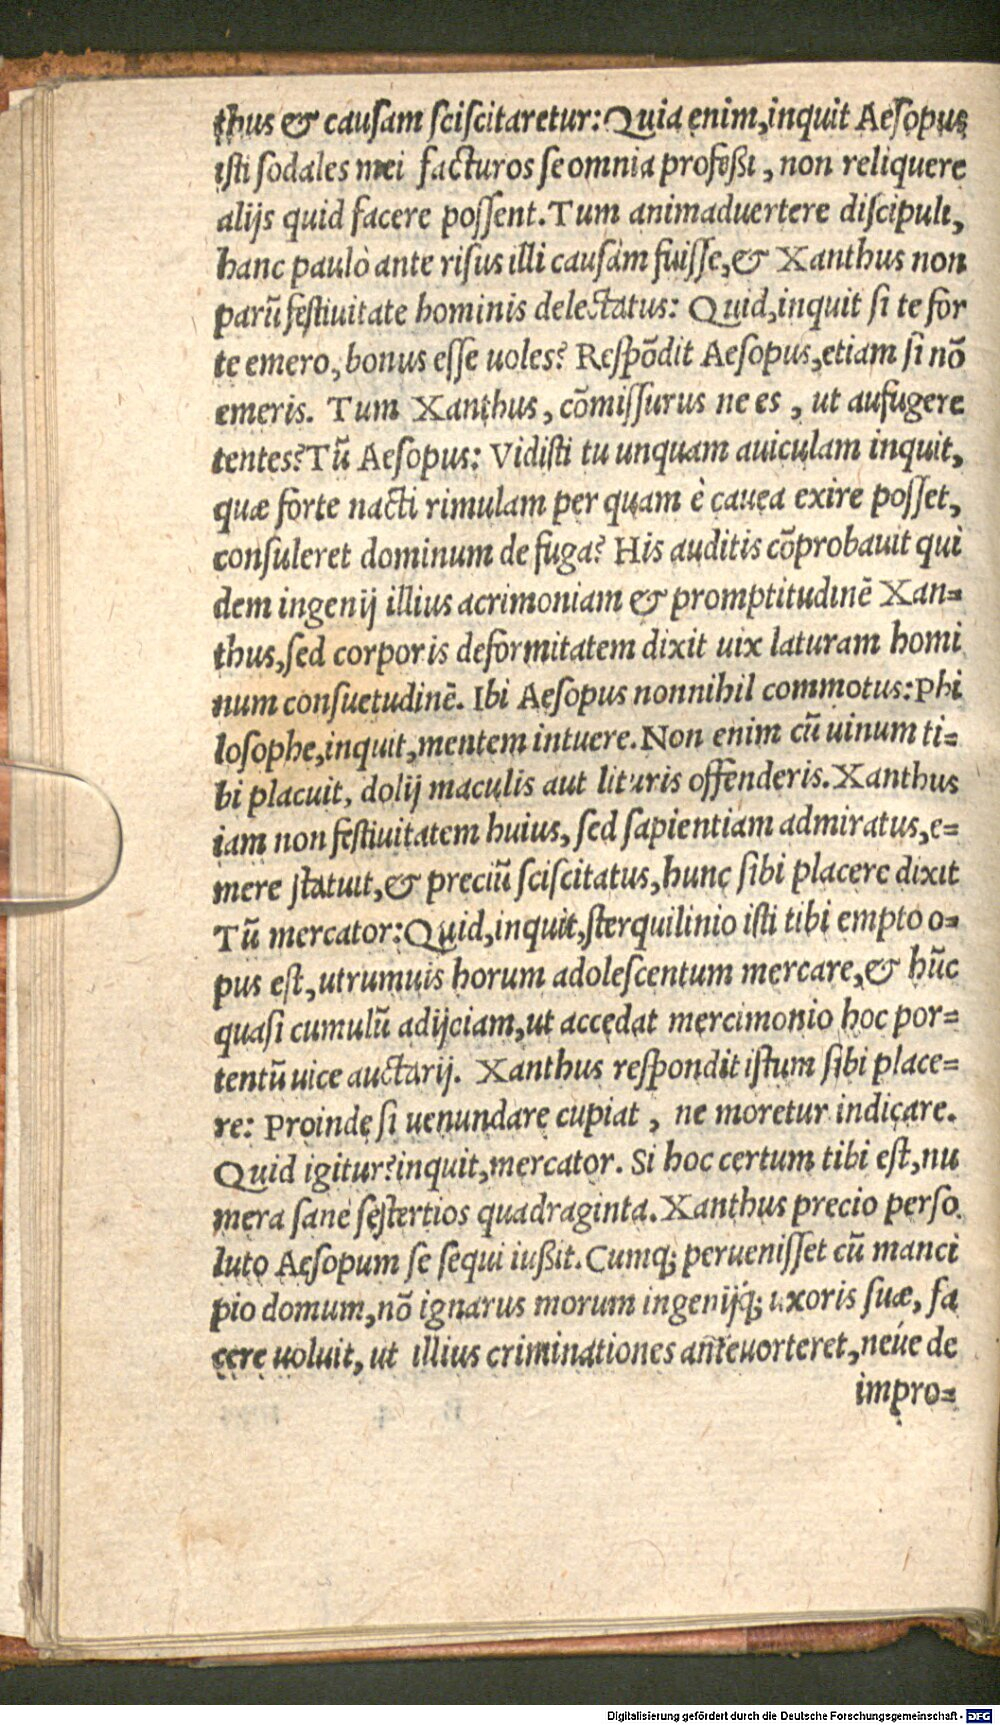 thus & causam sciscitaretur: Quia enim, inquit Aesopus
isti sodales mei facturos se omnia profeßi, non reliquere
alijs quid facere possent. Tum animaduertere discipuli,
hanc paulò ante risus illi causam fuisse, & Xanthus non
parū festiuitate hominis delectatus: Quid, inquit si te for
te emero, bonus esse uoles? Respōdit Aesopus, etiam si nō
emeris. Tum Xanthus, cōmissurus ne es, ut aufugere
tentes? Tū Aesopus: Vidisti tu unquam auiculam inquit,
quæ forte nacti rimulam per quam è cauea exire posset,
consuleret dominum de fuga? His auditis cōprobauit qui
dem ingenij illius acrimoniam & promptitudinē Xan=
thus, sed corporis deformitatem dixit uix laturam homi
num consuetudinē. Ibi Aesopus nonnihil commotus: Phi
losophe, inquit, mentem intuere. Non enim cū uinum ti=
bi placuit, dolij maculis aut lituris offenderis. Xanthus
iam non festiuitatem huius, sed sapientiam admiratus, e=
mere statuit, & preciū sciscitatus, hunc sibi placere dixit
Tū mercator: Quid, inquit, sterquilinio isti tibi empto o=
pus est, utrumuis horum adolescentum mercare, & hūc
quasi cumulū adijciam, ut accedat mercimonio hoc por=
tentū uice auctarij. Xanthus respondit istum sibi place=
re: Proinde si uenundare cupiat, ne moretur indicare.
Quid igitur? inquit, mercator. Si hoc certum tibi est, nu
mera sane sestertios quadraginta. Xanthus precio perso
luto Aesopum se sequi iußit. Cumq; peruenisset cū manci
pio domum, nō ignarus morum ingenijq́; uxoris suæ, fa
cere uoluit, ut illius criminationes anteuorteret, néue de
impro=
Digitalisierung gefördert durch die Deutsche Forschungsgemeinschaft - DFG